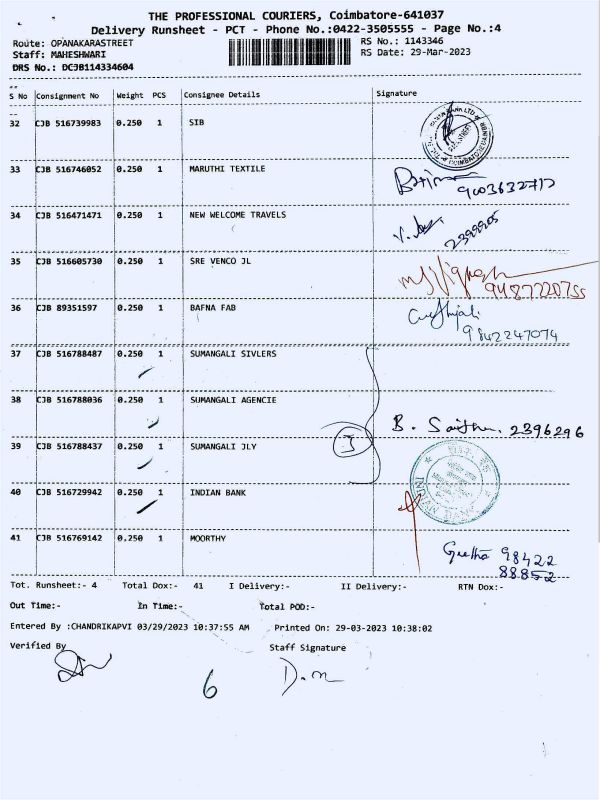 THE PROFESSIONAL COURIERS, Coimbatore-641037
Delivery Runsheet - PCT - Phone No.:0422-3505555 - Page No.:4
Route: OPANAKARASTREET RS No.: 1143346
Staff: MAHESHWARI RS Date: 29-Mar-2023
DRS No.: DCJB114334604
S No Consignment No Weight PCS Consignee Details Signature
32 CJB 516739983 0.250 1 SIB
33 CJB 516746052 0.250 1 MARUTHI TEXTILE
9003632712
34 CJB 516471471 0.250 1 NEW WELCOME TRAVELS
2399905
35 CJB 516605730 0.250 1 SRE VENCO JL
9487220755
36 CJB 89351597 0.250 1 BAFNA FAB
9842247074
37 CJB 516788487 0.250 1 SUMANGALI SIVLERS
38 CJB 516788036 0.250 1 SUMANGALI AGENCIE
B. 2396296
39 CJB 516788437 0.250 1 SUMANGALI JLY
3
40 CJB 516729942 0.250 1 INDIAN BANK
INDIAN BANK
41 CJB 516769142 0.250 1 MOORTHY
Geetha 98422
88852
Tot. Runsheet:- 4 Total Dox:- 41 I Delivery:- II Delivery:- RTN Dox:-
Out Time:- In Time:- Total POD:-
Entered By :CHANDRIKAPVI 03/29/2023 10:37:55 AM Printed On: 29-03-2023 10:38:02
Verified By Staff Signature
6